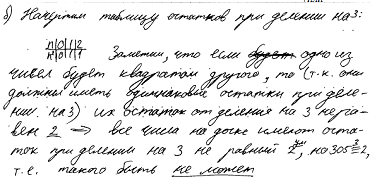 б) Начертим таблицу остатков при делении на 3:
n|0|1|2
n²|0|1|1 Заметим, что если будет одно из
чисел будет квадратом другого, то (т.к. они
должны иметь одинаковые остатки при деле-
нии на 3) их остаток от деления на 3 не ра-
вен 2 ⇒ все числа на доске имеют оста-
ток при делении на 3 не равный 2, но 305≡2,
т.е. такого быть не может